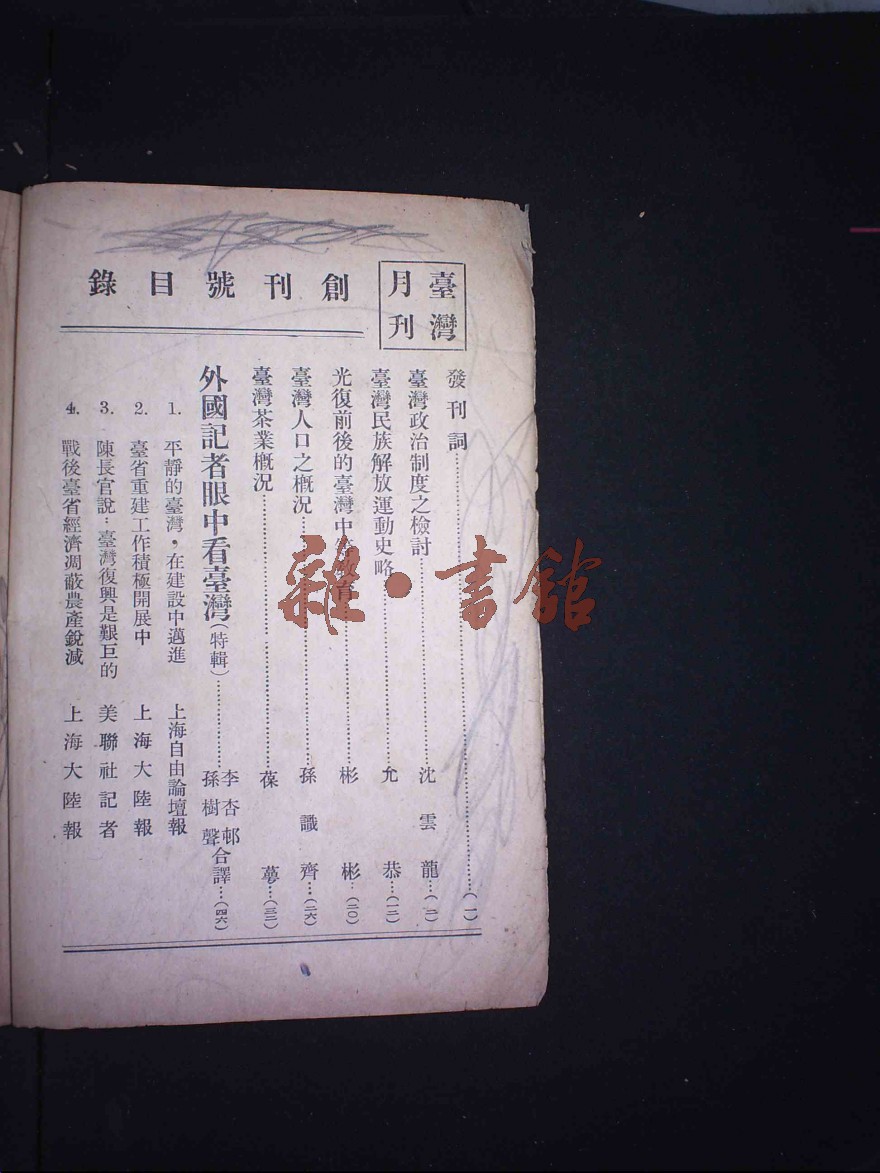 臺灣月刊
創刊號目錄
發刊詞……(一)
臺灣政治制度之檢討……沈雲龍…(二)
臺灣民族解放運動史略……允恭…(一二)
光復前後的臺灣中教育……彬彬…(二〇)
臺灣人口之概況……孫識齊…(二六)
臺灣茶業概況……葆蕚…(三二)
外國記者眼中看臺灣(特輯)……李杏邨 孫樹聲合譯…(四六)
1. 平靜的臺灣,在建設中邁進 上海自由論壇報
2. 臺省重建工作積極開展中 上海大陸報
3. 陳長官說:臺灣復興是艱巨的 美聯社記者
4. 戰後臺省經濟凋蔽農產銳減 上海大陸報
雜·書館